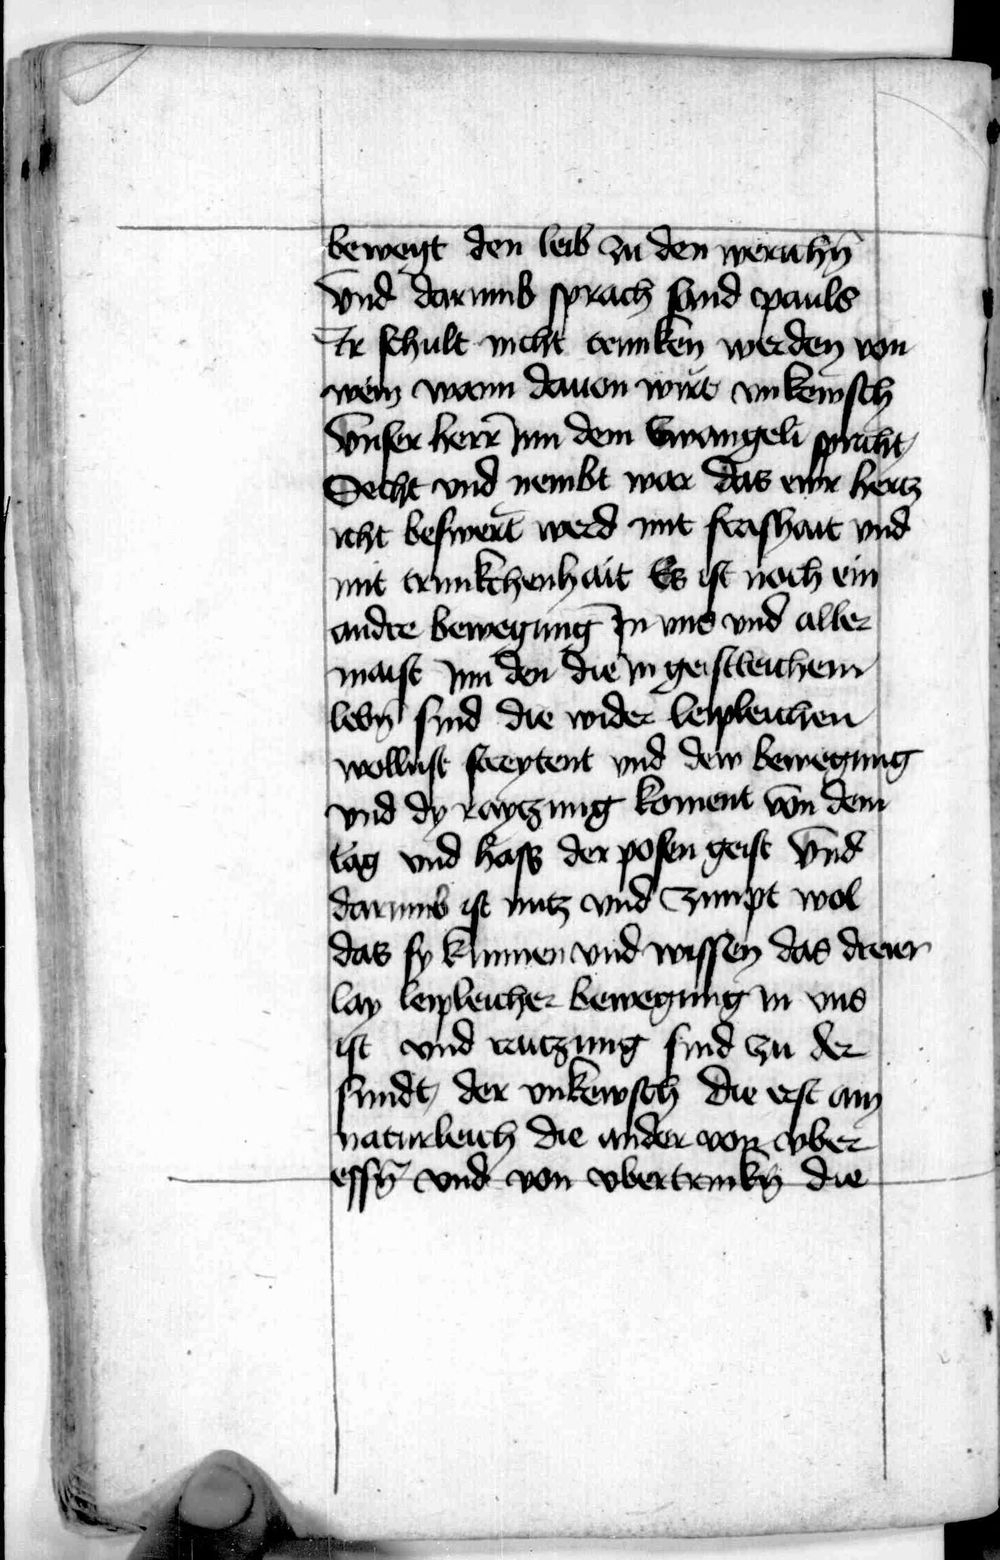 bewegt den leib zu den werichn̄
Vnd darumb sprach sand pauls
Ir schult nicht trunken werden von
wein wann dauon wirt vnkewsch
Vnser herr̄ Inn dem Ewangeli spricht
Secht vnd nembt war das ewr hertz
icht beswert werd mit frashait vnd
mit trunkchenhait Es ist noch ein
andre bewegung In vns vnd aller
maist Inn den die in geistleichem
lebn̄ sind die wider leipleichen
wollust streytent vnd dew bewegung
vnd dy raytzung koment von dem
vnd hass der posen geist Vnd
darumb ist nutz vnd zimpt wol
das sy kunnen vnd wissen das dreier
lay leipleicher bewegung in vns
ist vnd raitzung sind zu der
sundt der vnkewsch die erst ain
naturleich die ander von vber
essn̄ vnd von vbertrinkn̄ die